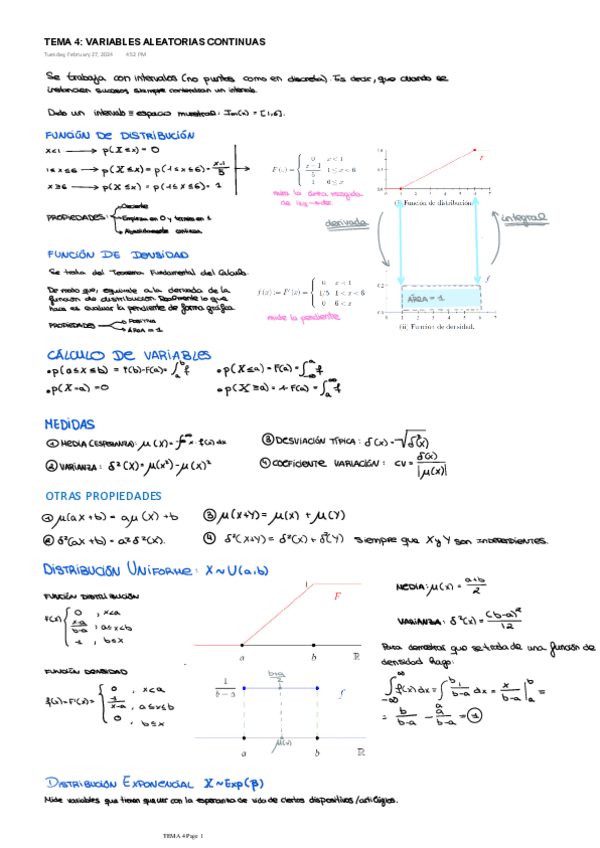 TEMA 4: VARIABLES ALEATORIAS CONTINUAS
Tuesday, February 27, 2024 4:52 PM
Se trabaja con intervalos (no puntos como en discreta). Es decir, que cuando se
mencionen sucesos siempre contendrán un intervalo.
Dado un intervalo ≡ espacio muestral: Im(x) = [1,6].
FUNCIÓN DE DISTRIBUCIÓN
x<1 → p(X≤x) = 0
1≤x≤6 → p(X≤x) = p(1≤x≤6) = x-1/5
x≥6 → p(X≤x) = p(1≤x≤6) = 1
F(x) = { 0 x<1
x-1/5 1≤x<6
1 6≤x
mide la área recogida
de izq→der.
PROPIEDADES: Creciente
Empieza en 0 y termina en 1
Absolutamente continua
F
(i) Función de distribución
derivada
integral
FUNCIÓN DE DENSIDAD
Se trata del Teorema Fundamental del Cálculo.
De modo que, equivale a la derivada de la
función de distribución. Realmente lo que
hace es evaluar la pendiente de forma gráfica
PROPIEDADES → Positiva
ÁREA = 1
f(x) := F'(x) = { 0 x<1
1/5 1<x<6
0 6<x
mide la pendiente
f
ÁREA = 1
(ii) Función de densidad.
CÁLCULO DE VARIABLES
• p(a≤X≤b) = F(b)-F(a) = ∫ₐᵇ f
• p(X≤a) = F(a) = ∫₋∞ᵃ f
• p(X=a) = 0
• p(X≥a) = 1-F(a) = ∫ₐ^∞ f
MEDIDAS
① MEDIA (ESPERANZA): μ(X) = ∫ x · f(x) dx
③ DESVIACIÓN TÍPICA: δ(x) = √δ²(x)
② VARIANZA: δ²(X) = μ(x²) - μ(x)²
④ COEFICIENTE VARIACIÓN: CV = δ(x)/|μ(x)|
OTRAS PROPIEDADES
① μ(ax+b) = aμ(X)+b
③ μ(X+Y) = μ(X) + μ(Y)
② δ²(ax+b) = a²δ²(X).
④ δ²(X+Y) = δ²(X) + δ²(Y) siempre que X y Y son INDEPENDIENTES.
DISTRIBUCIÓN UNIFORME: X~U(a,b)
FUNCIÓN DISTRIBUCIÓN
F(x) { 0 , x<a
x-a/b-a , a≤x<b
1 , b≤x
1
F
a b ℝ
MEDIA: μ(x) = a+b/2
VARIANZA: δ²(x) = (b-a)²/12
Para demostrar que se trata de una función de
densidad hago:
∫₋∞^∞ f(x) dx = ∫ₐᵇ 1/b-a dx = x/b-a |ₐᵇ =
= b/b-a - a/b-a = ①
FUNCIÓN DENSIDAD
f(x) = F'(x) = { 0 , x<a
1/x-a , a≤x≤b
0 , b≤x
1/b-a
b+a/2
f
a μ(x) b ℝ
DISTRIBUCIÓN EXPONENCIAL X~Exp(β)
Mide variables que tienen que ver con la esperanza de vida de ciertos dispositivos/artilugios.
TEMA 4 Page 1